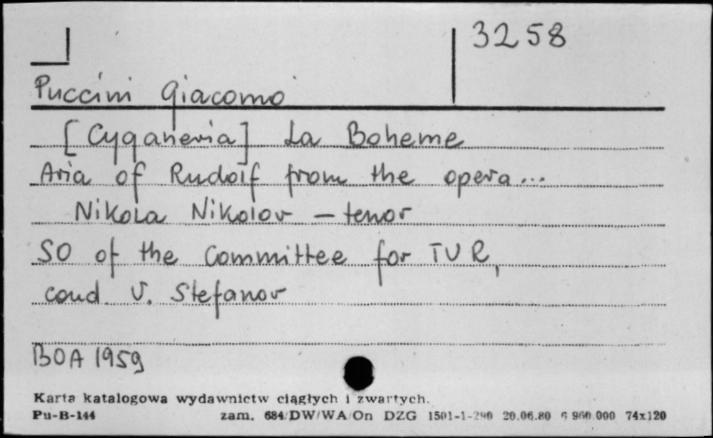 3258
Puccini Giacomo
[Cyganeria] La Boheme
Aria of Rudolf from the opera...
Nikola Nikolov - tenor
SO of the Committee for TVR,
cond. V. Stefanov
BOA 1959
Karta katalogowa wydawnictw ciągłych i zwartych.
Pu-B-144 zam. 684/DW/WA/On DZG 1501-1-290 20.06.80 6 960.000 74x120